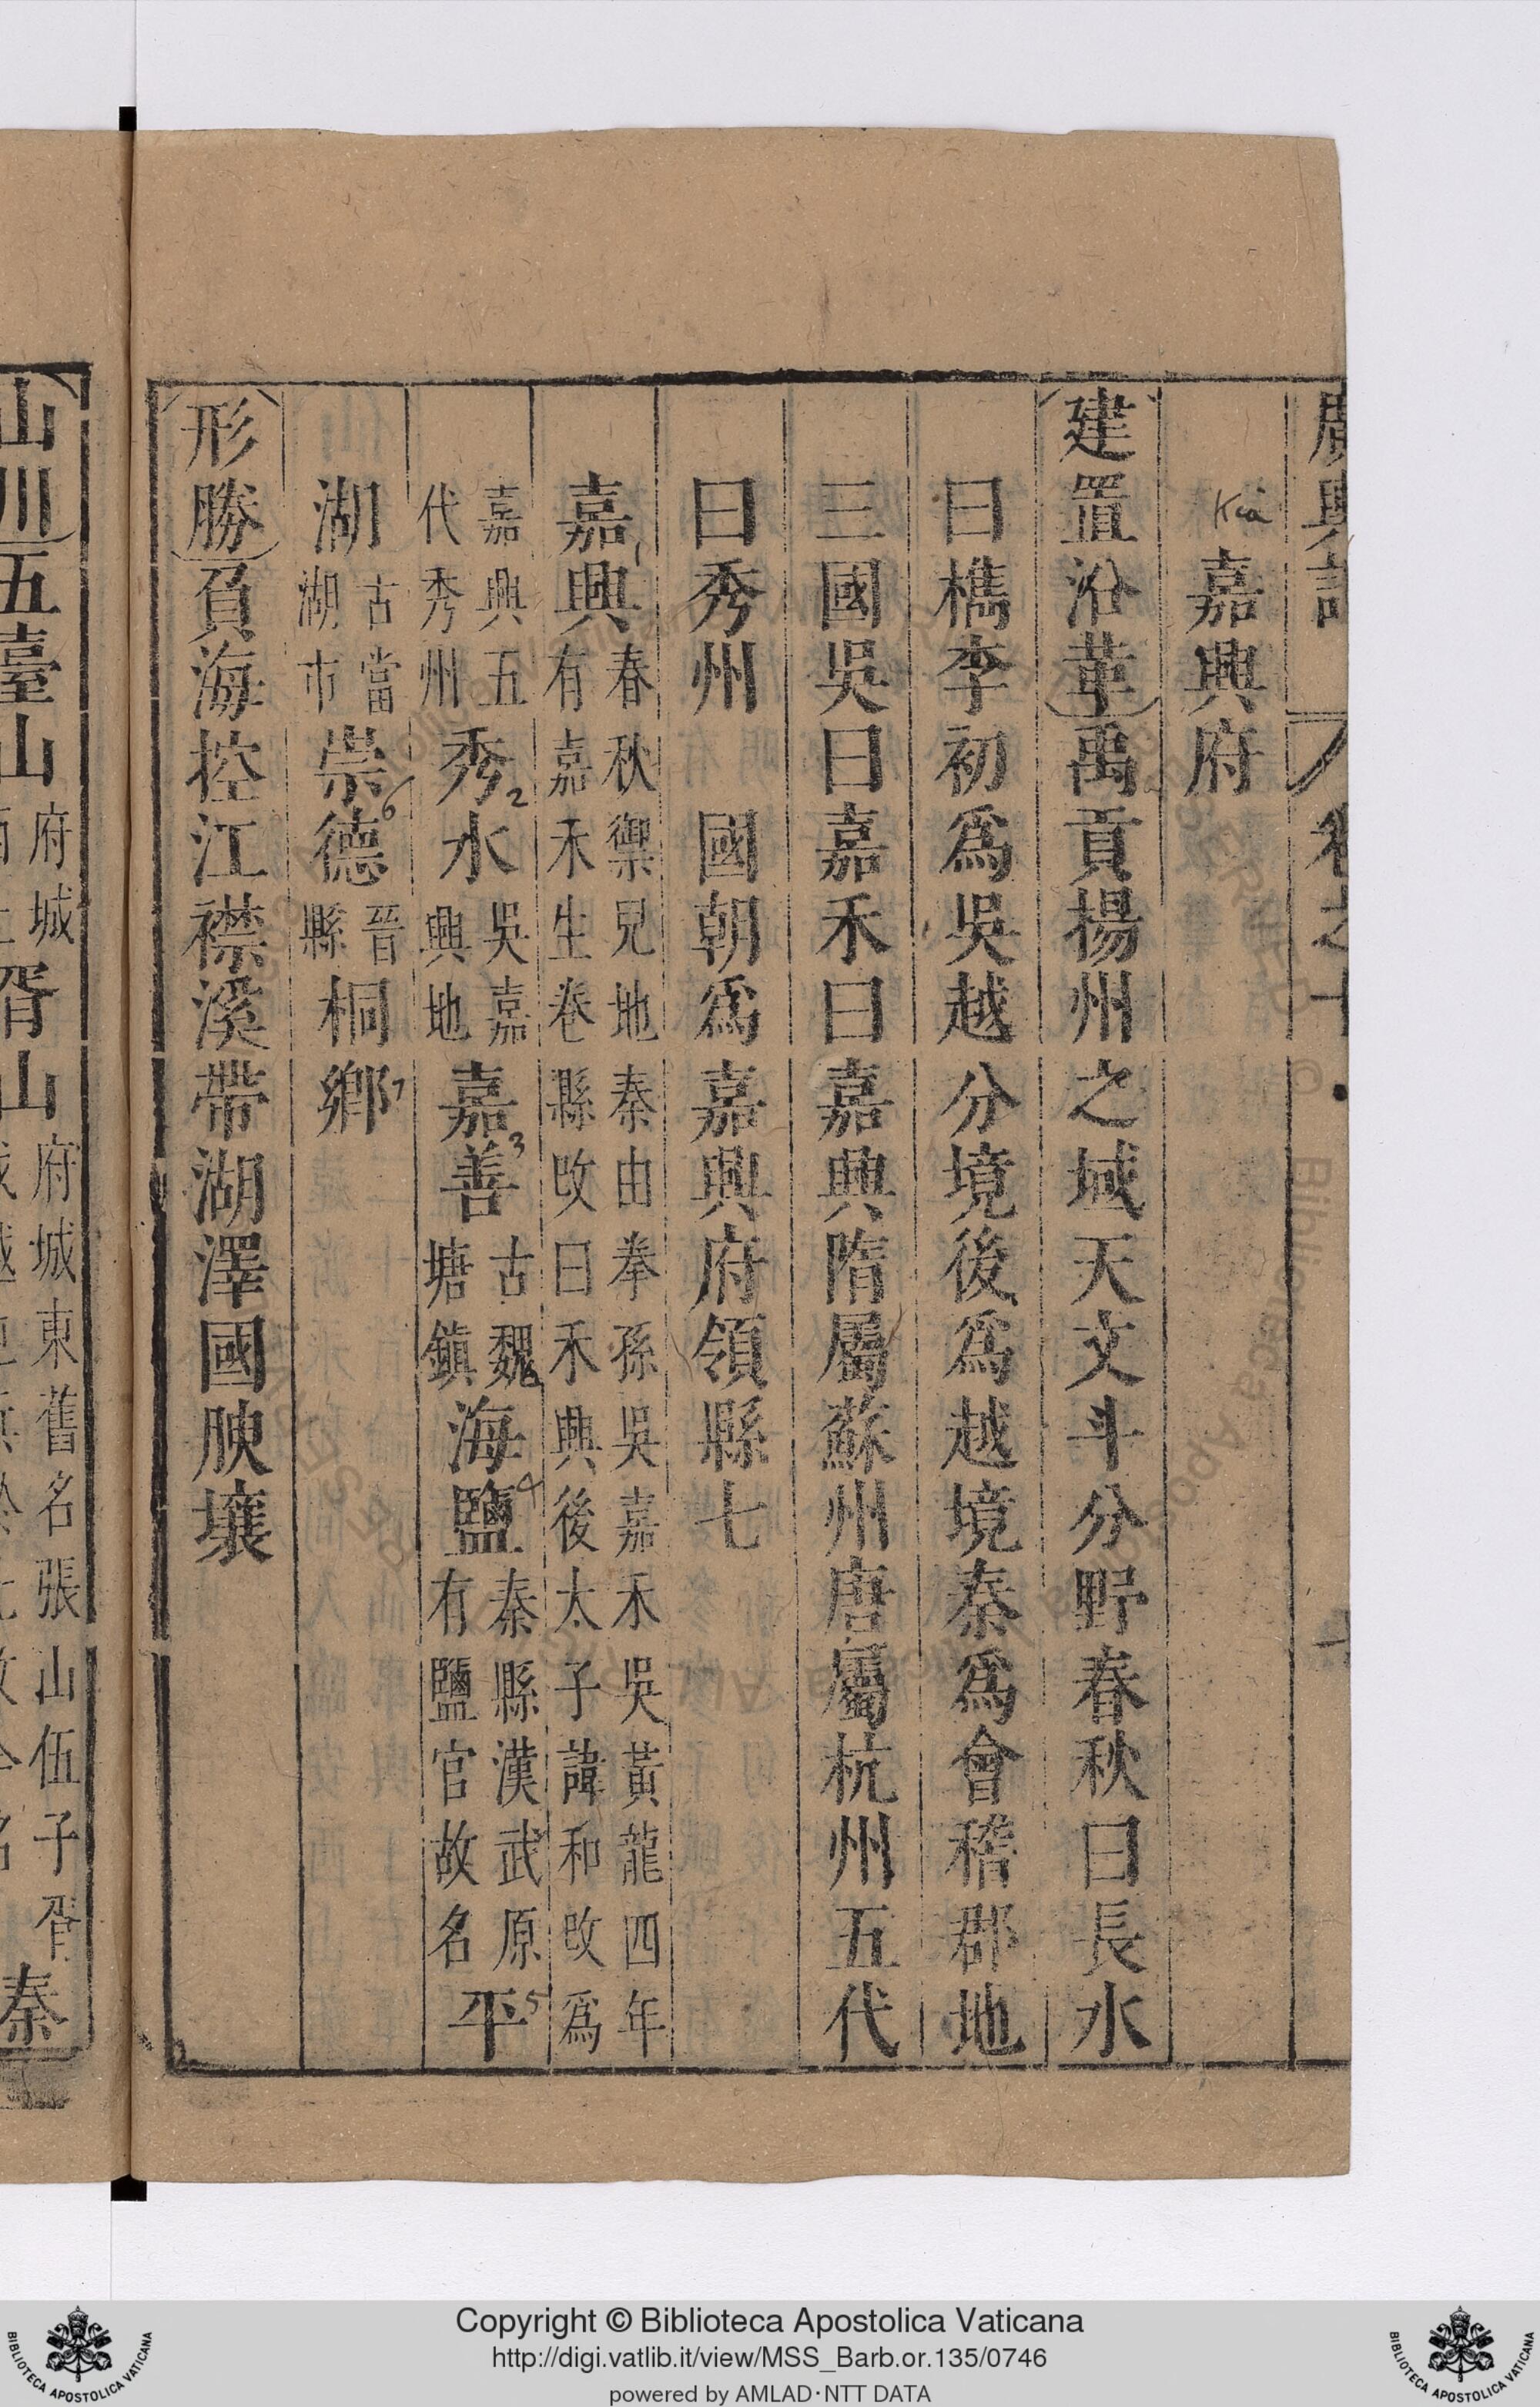 廣輿記 卷之十
Kia
嘉興府
建置沿革禹貢揚州之域天文斗分野春秋曰長水
曰檇李初爲吳越分境後爲越境秦爲會稽郡地
三國吳曰嘉禾曰嘉興隋屬蘇州唐屬杭州五代
曰秀州 國朝爲嘉興府領縣七
嘉興1春秋禦兒地秦由拳孫吳嘉禾吳黃龍四年有嘉禾生卷縣改曰禾興後太子諱和改爲
嘉興五代秀州秀水2吳嘉興地嘉善3古魏塘鎮海鹽4秦縣漢武原有鹽官故名平5
湖古當湖市崇德6晉縣桐鄉7
形勝負海控江襟溪帶湖澤國腴壤
山川五臺山府城
胥山府城東舊名張山伍子胥
秦
Copyright © Biblioteca Apostolica Vaticana
http://digi.vatlib.it/view/MSS_Barb.or.135/0746
powered by AMLAD·NTT DATA
BIBLIOTECA APOSTOLICA VATICANA
BIBLIOTECA APOSTOLICA VATICANA